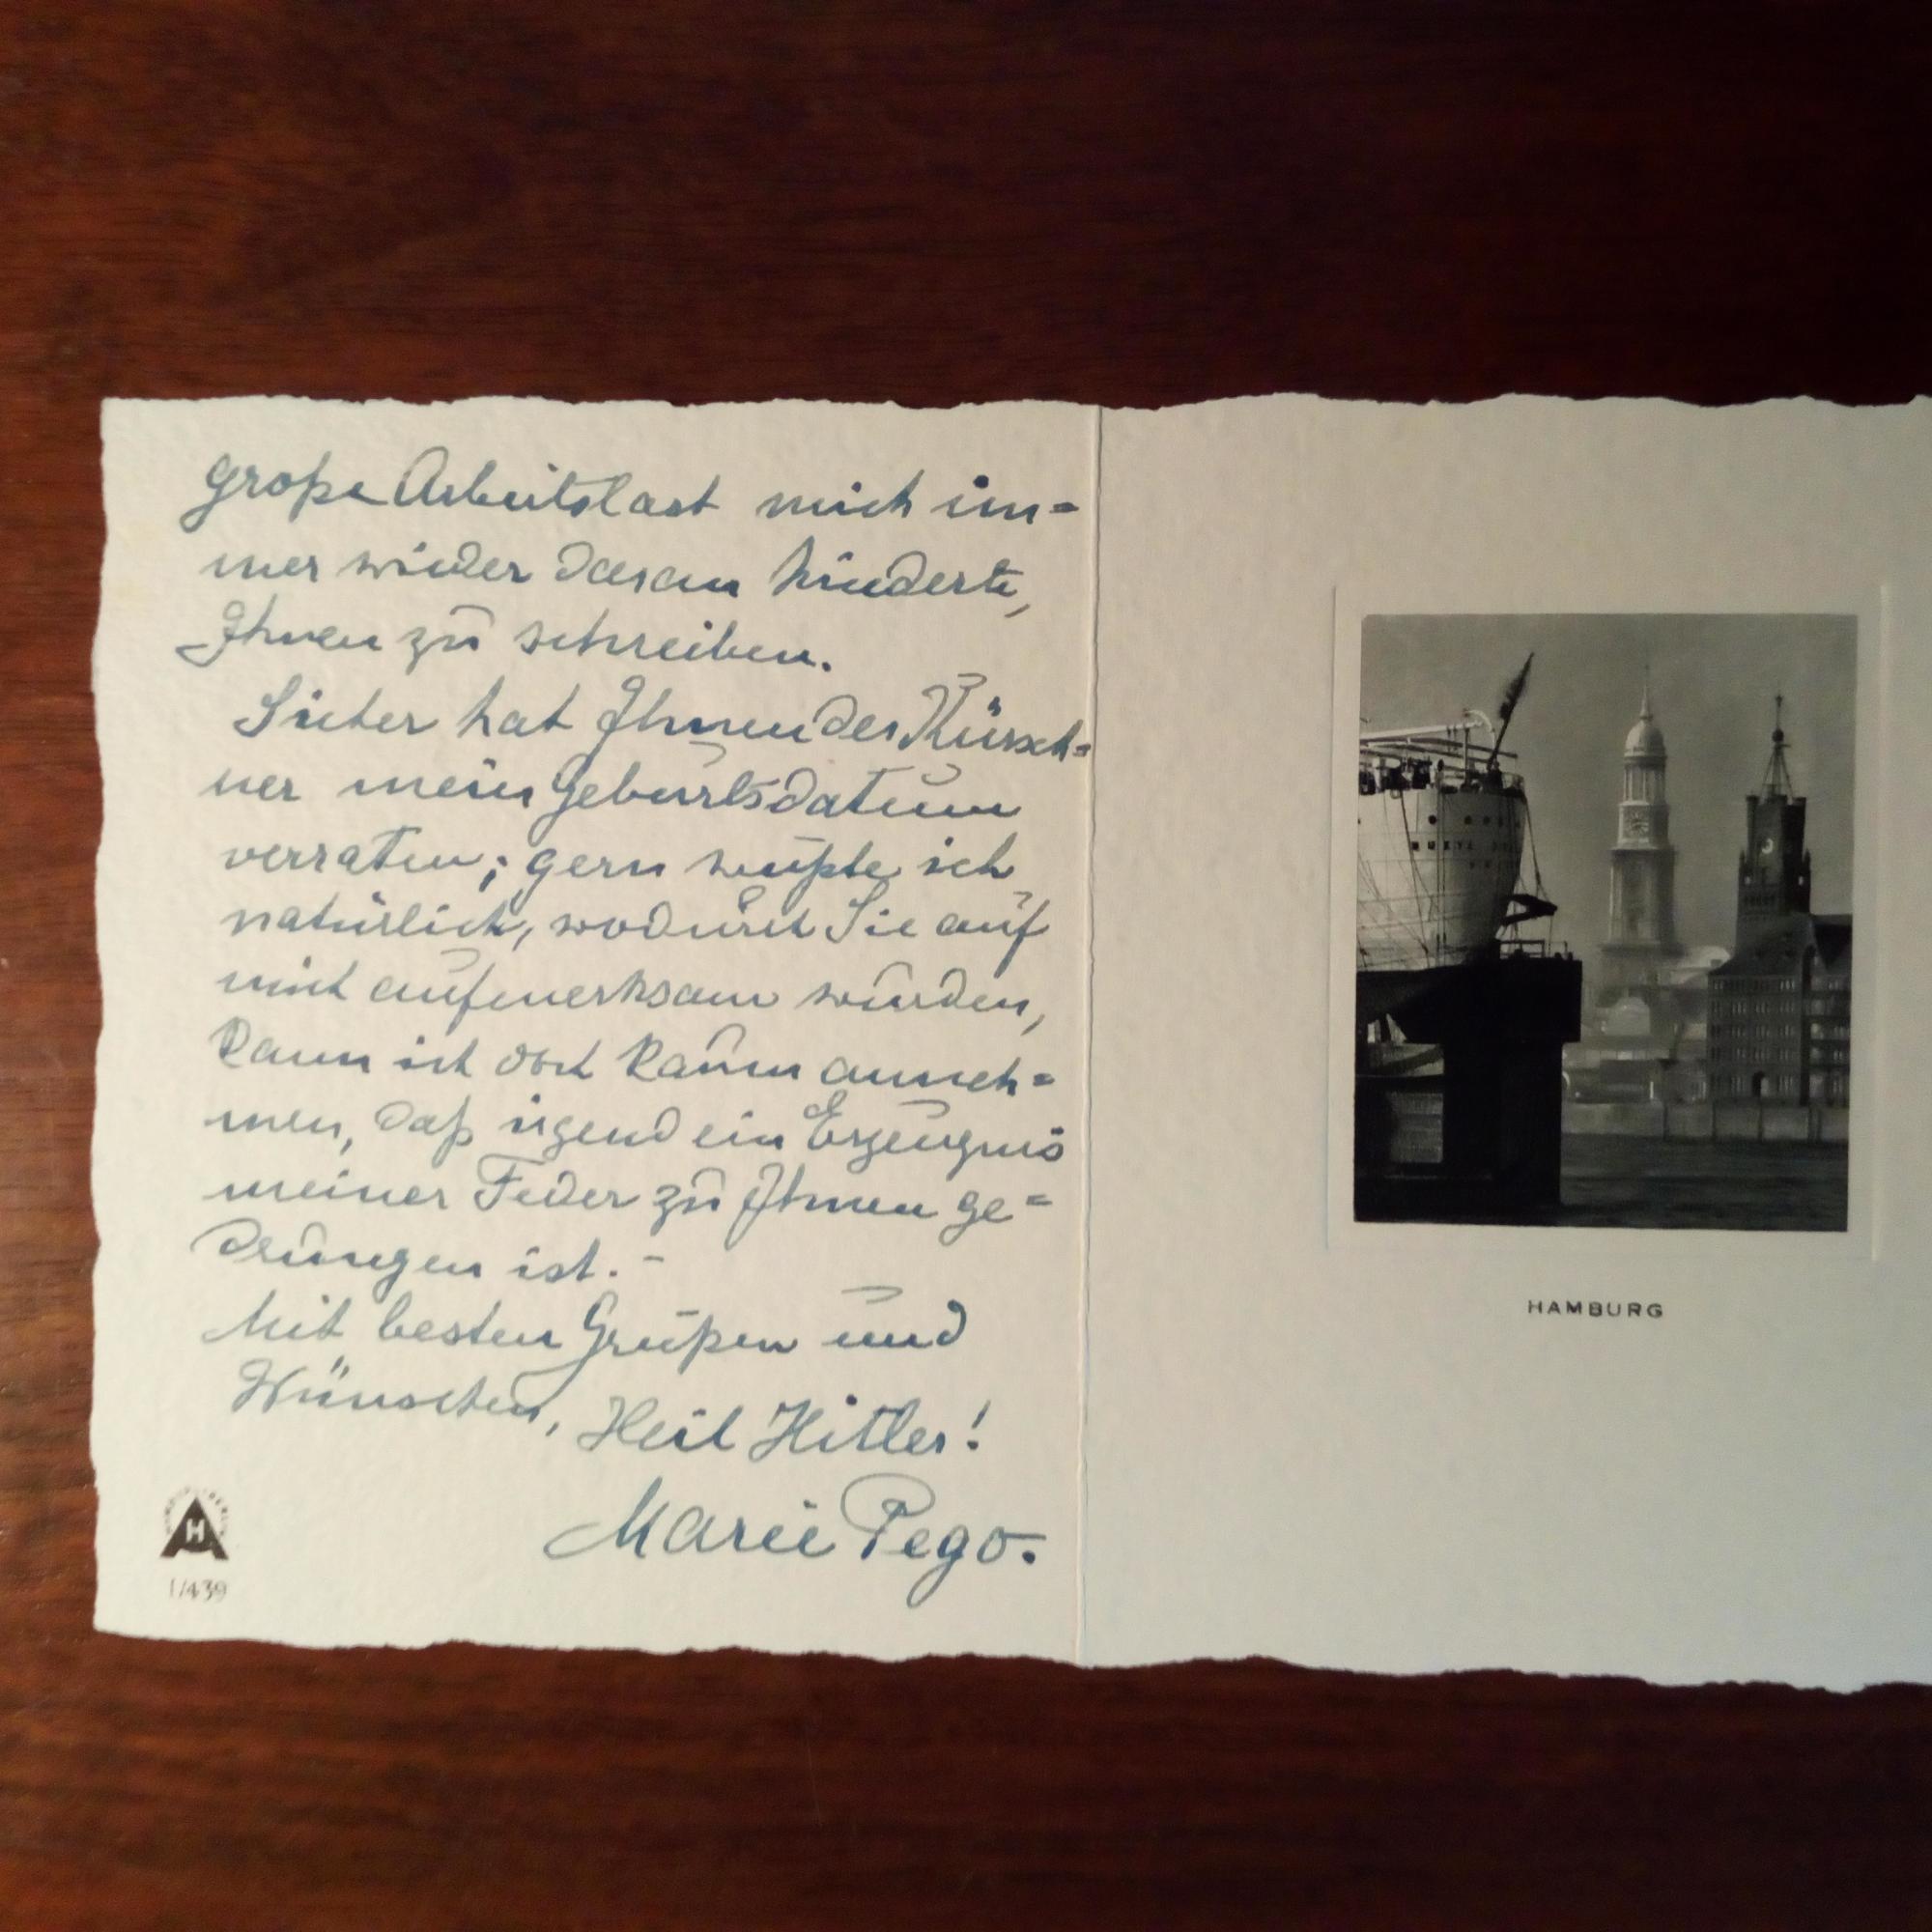 große Arbeitslast mich im=
mer wieder daran hinderte,
Ihnen zu schreiben.
Sicher hat Ihnen der Kürsch=
ner mein Geburtsdatum
verraten; gern wüßte ich
natürlich, wodurch Sie auf
mich aufmerksam wurden,
kann ich doch kaum anneh=
men, daß irgend ein Erzeugnis
meiner Feder zu Ihnen ge=
drungen ist. -
Mit besten Grüßen und
Wünschen, Heil Hitler!
Marie Pego.
H
1/439
HAMBURG